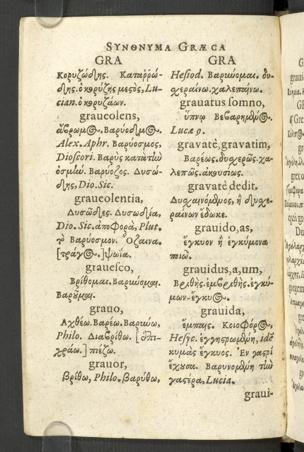 SYNONYMA GRÆCA
GRA
Κορυζώδης. Καταῤῥώ-
δης. ὁ κορύζης μεστὸς, Lu-
cian. ὁ κορυζάων.
graueolens,
ἄβρωμος. Βαρύοδμος.
Alex. Aphr. Βαρύοσμος,
Dioscori. Βαρὺς κατὰ τὴν
ὀσμήν. Βαρύοζος. Δυσώ-
δης, Dio. Sic.
graueolentia,
Δυσῶδες. Δυσωδία,
Dio. Sic. ἀποφορὰ, Plut.
τὸ Βαρύοσμον. Οζαινα.
[τράγος.] ψωΐα.
grauesco,
Βρίθομαι. Βαρύνομαι.
grauo,
Αχθέω. Βαρέω. Βαρύνω,
Philo. Διαβρίθω. [ἐπι-
] πιέζω.
grauor,
βρίθω, Philo. βαρύθω,
GRA
Hesiod. Βαρύνομαι. δυ-
χεραίνω. χαλεπαίνω.
grauatus somno,
ὕπνῳ βεβαρημένος.
Lucæ 9.
grauatè, grauatim,
Βαρέως. δυσχερῶς. χα-
λεπῶς. ἀκουσίως.
grauatè dedit,
Δυσχαινόμενος, ἢ δυσχε-
ραίνων ἔδωκε.
grauido, as,
ἔγκυον ἢ ἐγκύμονα
ποιῶ.
grauidus, a, um,
Βριθής. ἐμβριθής. ἐγκύ-
μων. ἔγκυος.
grauida,
Κειοφόρος,
Hesyc. ἐγγηστρωμένη, idē
κυμὰς ἔγκυος. Ἐν γαστρὶ
ἔχουσα. Βαρυνομένη τὴν
γαστέρα, Lucia.
graui-